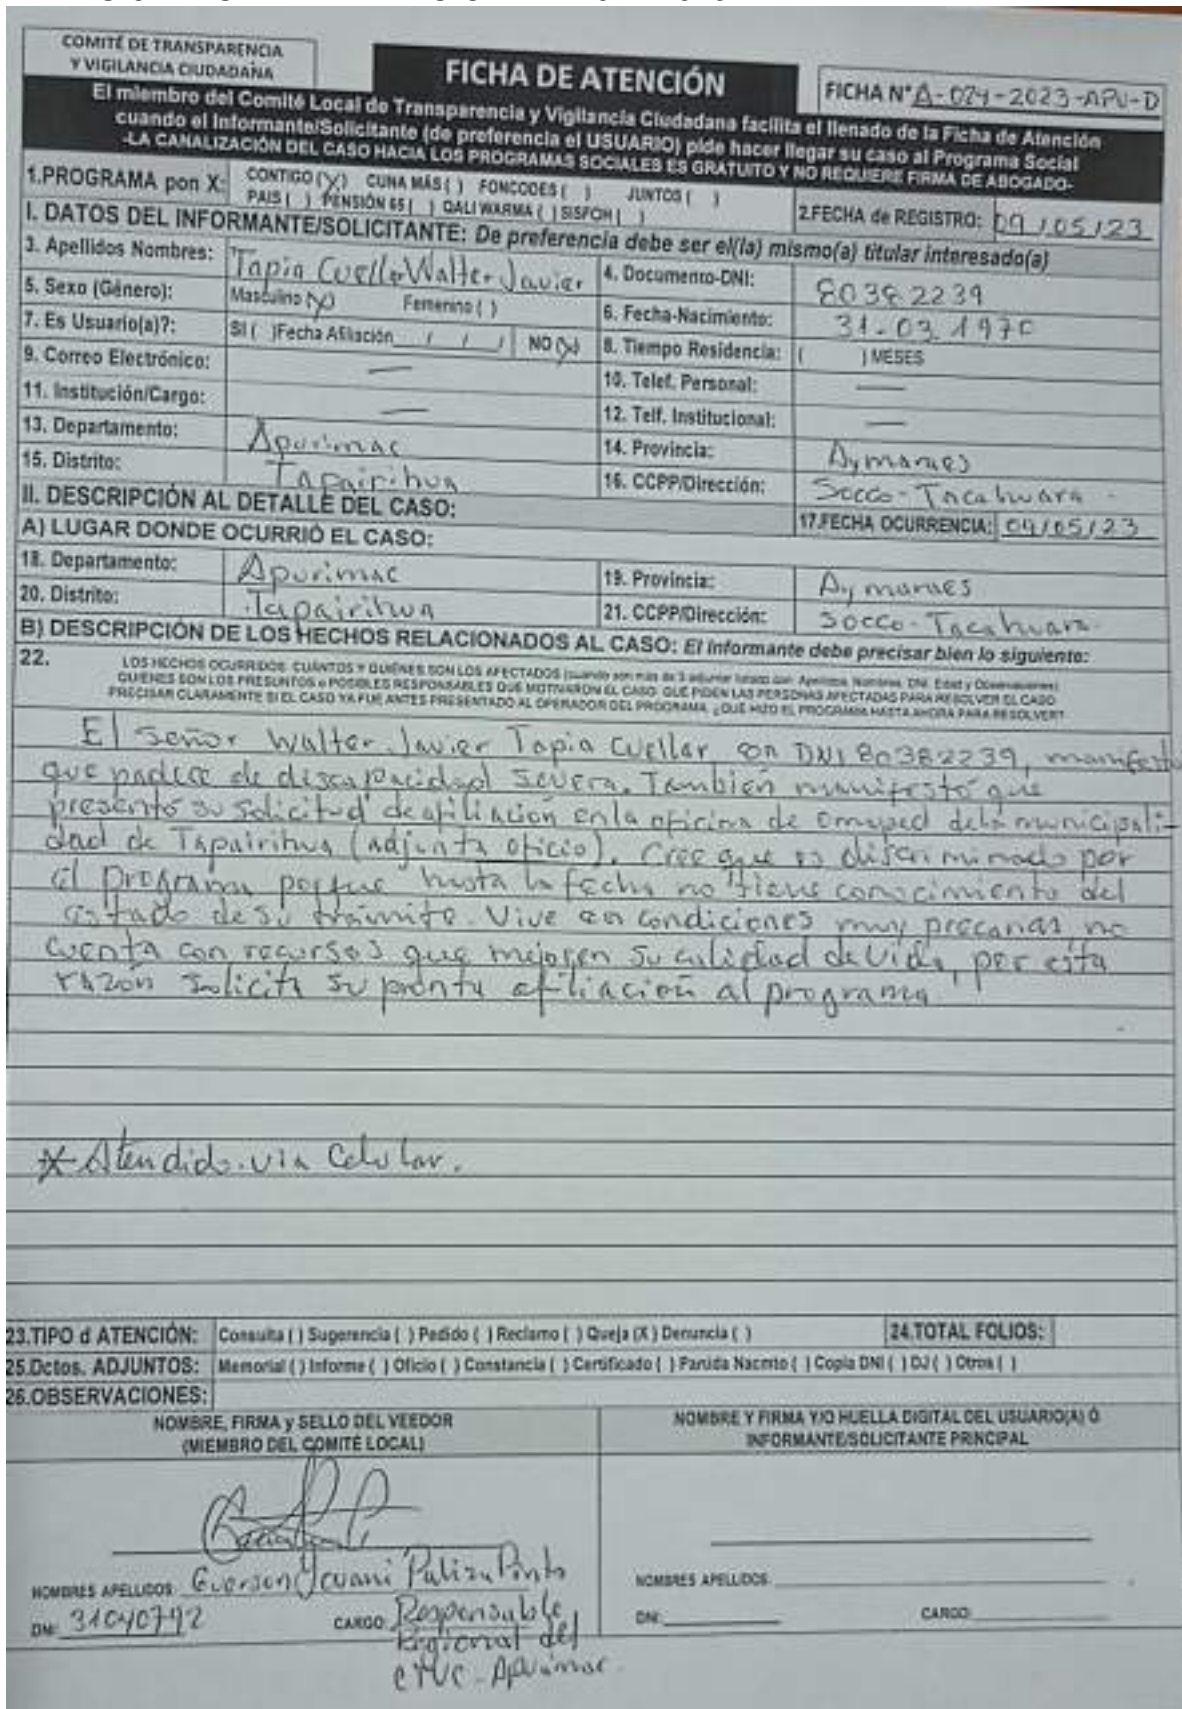 COMITÉ DE TRANSPARENCIA
Y VIGILANCIA CIUDADANA
FICHA DE ATENCIÓN
FICHA N° A-024-2023-APU-D
El miembro del Comité Local de Transparencia y Vigilancia Ciudadana facilita el llenado de la Ficha de Atención
cuando el Informante/Solicitante (de preferencia el USUARIO) pide hacer llegar su caso al Programa Social
-LA CANALIZACIÓN DEL CASO HACIA LOS PROGRAMAS SOCIALES ES GRATUITO Y NO REQUIERE FIRMA DE ABOGADO-
1.PROGRAMA pon X: CONTIGO (X) CUNA MÁS ( ) FONCODES ( ) JUNTOS ( )
PAIS ( ) PENSIÓN 65 ( ) QALI WARMA ( ) SISFOH ( )
2.FECHA de REGISTRO: 09/05/23
I. DATOS DEL INFORMANTE/SOLICITANTE: De preferencia debe ser el(la) mismo(a) titular interesado(a)
3. Apellidos Nombres: Tapia Cuellar Walter Javier 4. Documento-DNI: 80382239
5. Sexo (Género): Masculino (X) Femenino ( ) 6. Fecha-Nacimiento: 31-03-1970
7. Es Usuario(a)?: SI ( )Fecha Afiliación / / / NO (X) 8. Tiempo Residencia: ( ) MESES
9. Correo Electrónico: — 10. Telef. Personal: —
11. Institución/Cargo: — 12. Telf. Institucional: —
13. Departamento: Apurimac 14. Provincia: Aymaraes
15. Distrito: Tapairihua 16. CCPP/Dirección: Socco-Tacahuara-
II. DESCRIPCIÓN AL DETALLE DEL CASO:
17.FECHA OCURRENCIA: 04/05/23
A) LUGAR DONDE OCURRIÓ EL CASO:
18. Departamento: Apurimac 19. Provincia: Aymaraes
20. Distrito: Tapairihua 21. CCPP/Dirección: Socco-Tacahuara-
B) DESCRIPCIÓN DE LOS HECHOS RELACIONADOS AL CASO: El Informante debe precisar bien lo siguiente:
22. LOS HECHOS OCURRIDOS. CUÁNTOS Y QUIÉNES SON LOS AFECTADOS (cuando son más de 3 adjuntar listado con: Apellidos, Nombres, DNI, Edad y Observaciones)
QUIENES SON LOS PRESUNTOS o POSIBLES RESPONSABLES QUE MOTIVARON EL CASO. QUE PIDEN LAS PERSONAS AFECTADAS PARA RESOLVER EL CASO
PRECISAR CLARAMENTE SI EL CASO YA FUE ANTES PRESENTADO AL OPERADOR DEL PROGRAMA. ¿QUÉ HIZO EL PROGRAMA HASTA AHORA PARA RESOLVER?
El señor Walter Javier Tapia Cuellar, con DNI 80382239, manifestó
que padece de discapacidad severa. También manifestó que
presentó su solicitud de afiliación en la oficina de Omaped de la municipali-
dad de Tapairihua (adjunta oficio). Cree que es discriminado por
el programa porque hasta la fecha no tiene conocimiento del
estado de su trámite. Vive en condiciones muy precarias, no
cuenta con recursos que mejoren su calidad de vida, por esta
razón solicita su pronta afiliación al programa
* Atendido vía Celular.
23.TIPO d ATENCIÓN: Consulta ( ) Sugerencia ( ) Pedido ( ) Reclamo ( ) Queja (X) Denuncia ( ) 24.TOTAL FOLIOS:
25.Dctos. ADJUNTOS: Memorial ( ) Informe ( ) Oficio ( ) Constancia ( ) Certificado ( ) Partida Nacmto ( ) Copia DNI ( ) DJ ( ) Otros ( )
26.OBSERVACIONES:
NOMBRE, FIRMA y SELLO DEL VEEDOR
(MIEMBRO DEL COMITÉ LOCAL)
NOMBRE Y FIRMA Y/O HUELLA DIGITAL DEL USUARIO(A) Ó
INFORMANTE/SOLICITANTE PRINCIPAL
NOMBRES APELLIDOS: Everson Jovani Paliza Pinto
DNI: 31040792 CARGO: Responsable
Regional del
CTVC-Apurimac.
NOMBRES APELLIDOS:
DNI: CARGO: